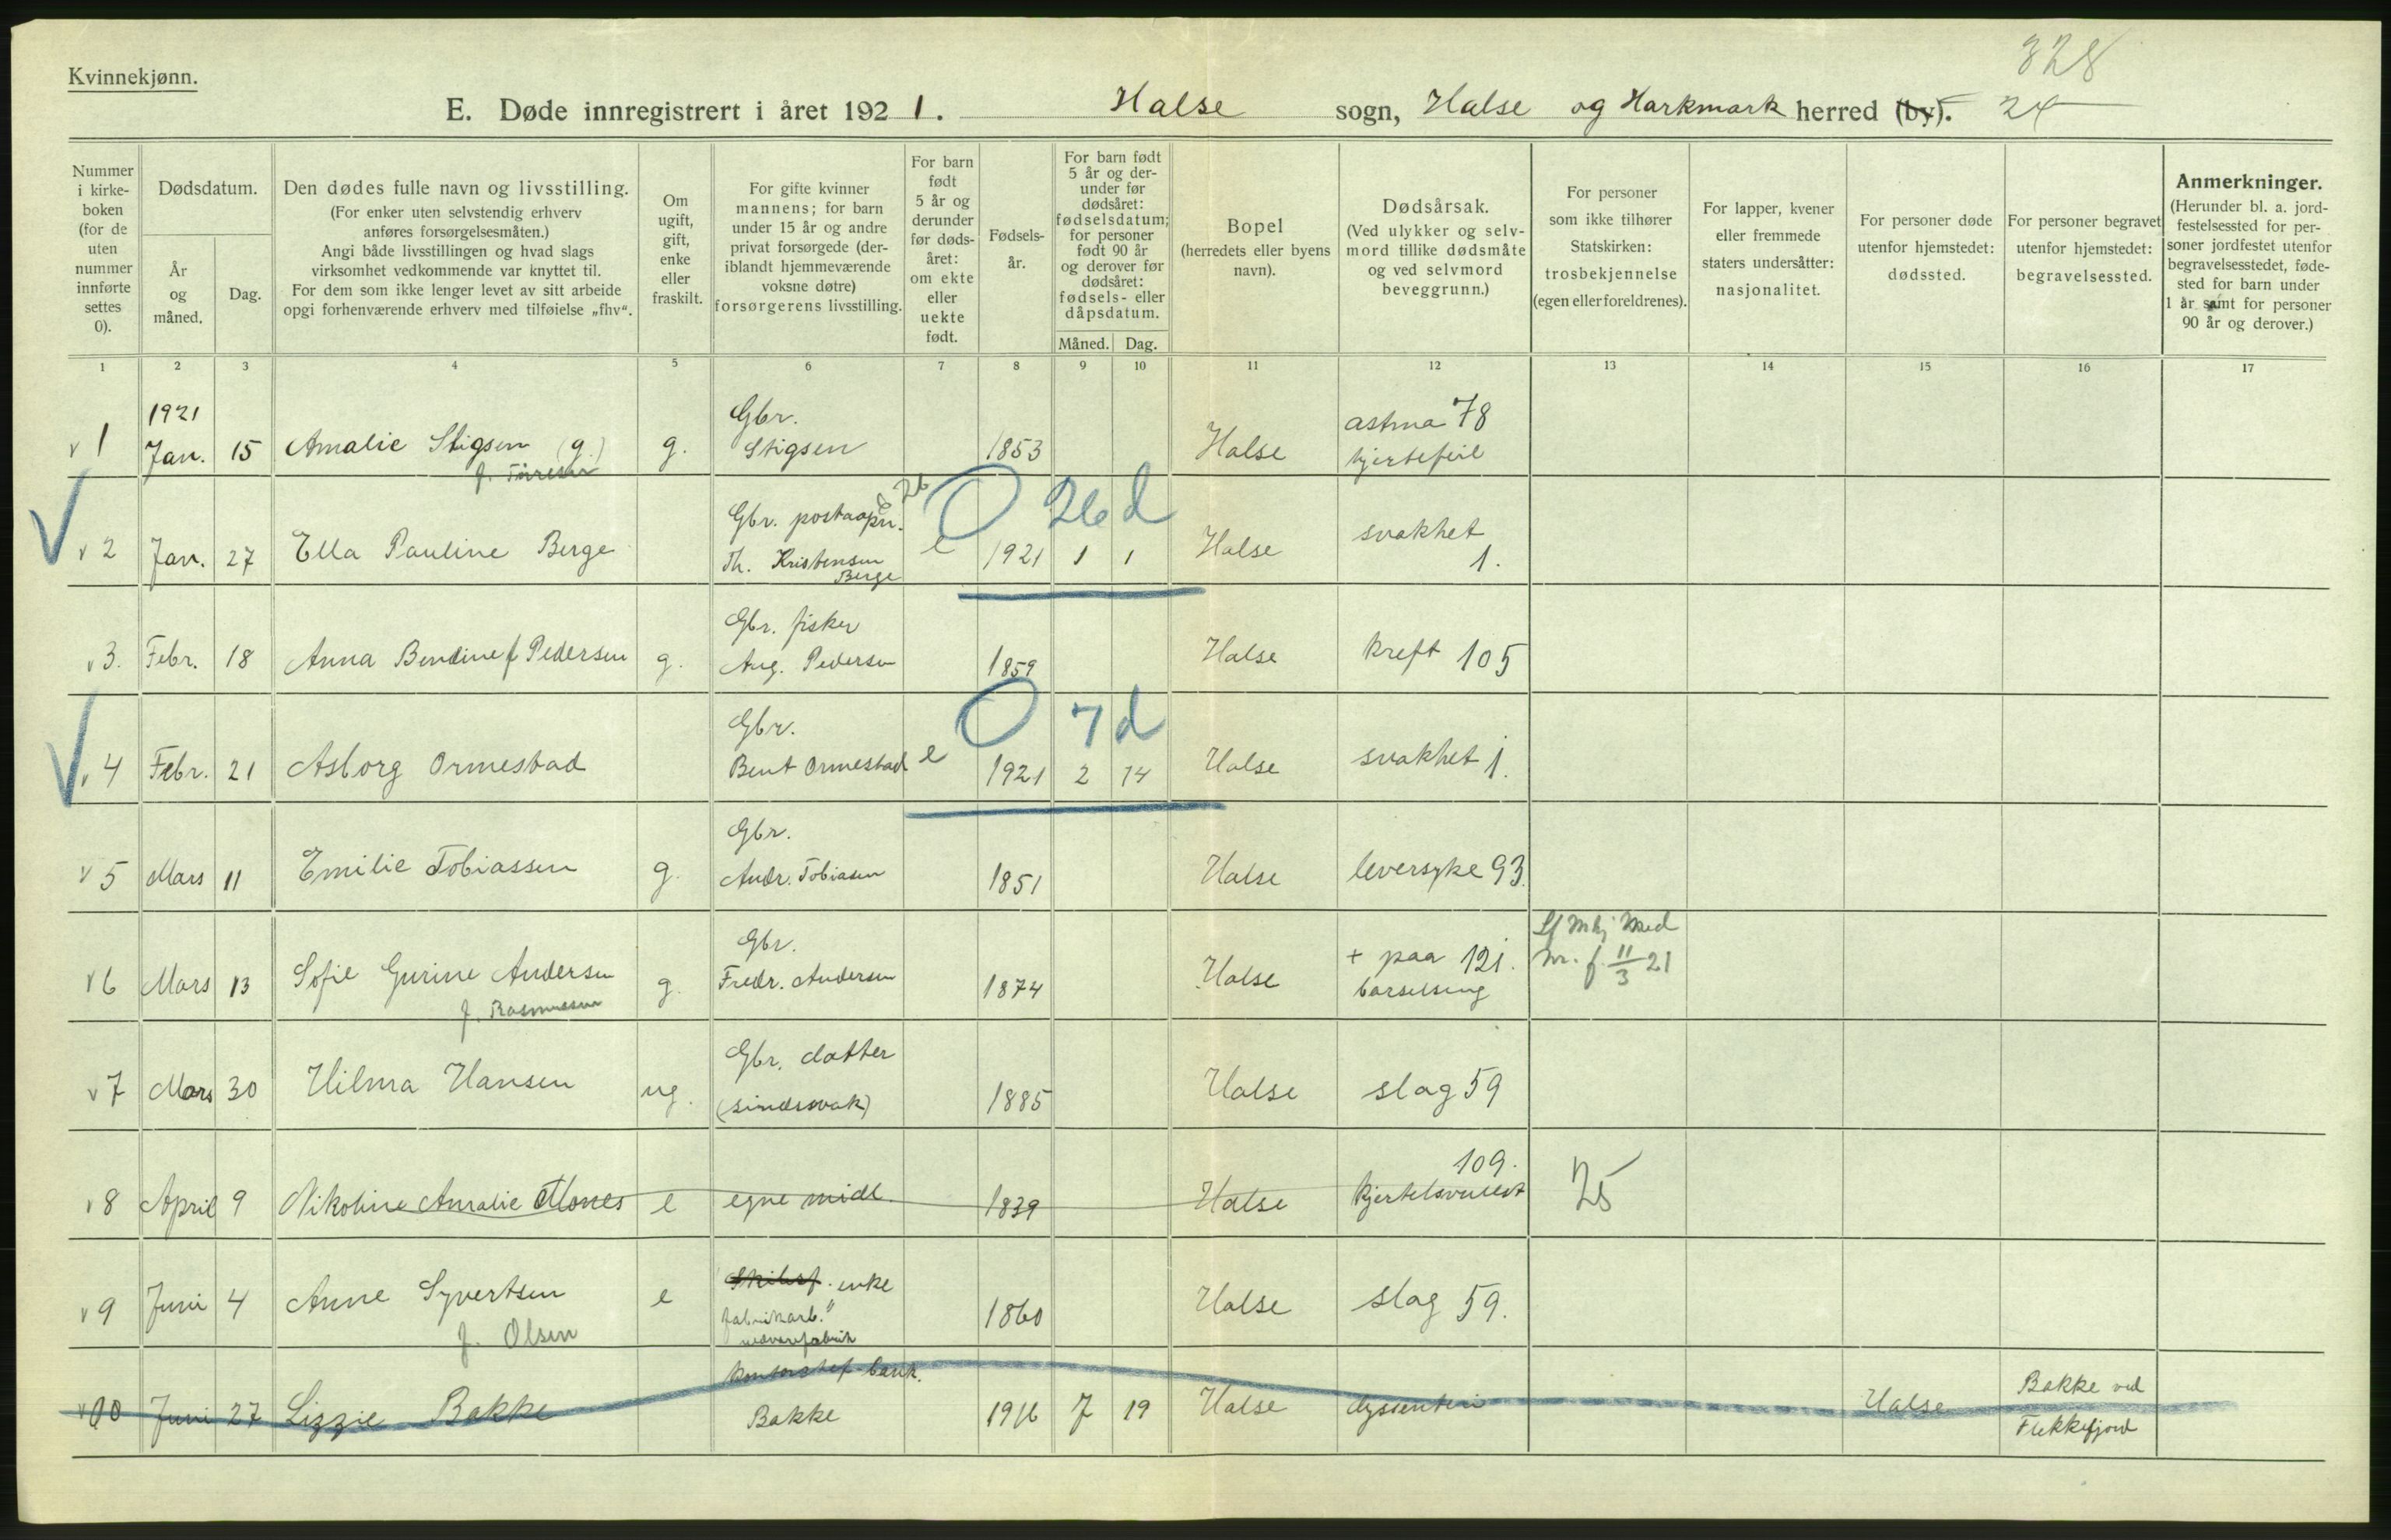 328
Kvinnekjønn.
E. Døde innregistrert i året 1921. Halse sogn, Halse og Harkmark herred (by). 24
Nummer i kirkeboken (for de uten nummer innførte settes 0).
Dødsdatum.
År og måned.
Dag.
Den dødes fulle navn og livsstilling.
(For enker uten selvstendig erhverv anføres forsørgelsesmåten.)
Angi både livsstillingen og hvad slags virksomhet vedkommende var knyttet til.
For dem som ikke lenger levet av sitt arbeide opgi forhenværende erhverv med tilføielse „fhv“.
Om ugift, gift, enke eller fraskilt.
For gifte kvinner mannens; for barn under 15 år og andre privat forsørgede (deriblandt hjemmeværende voksne døtre) forsørgerens livsstilling.
For barn født 5 år og derunder før dødsåret: om ekte eller uekte født.
Fødselsår.
For barn født 5 år og derunder før dødsåret: fødselsdatum; for personer født 90 år og derover før dødsåret: fødsels- eller dåpsdatum.
Måned. Dag.
Bopel
(herredets eller byens navn).
Dødsårsak.
(Ved ulykker og selvmord tillike dødsmåte og ved selvmord beveggrunn.)
For personer som ikke tilhører Statskirken: trosbekjennelse (egen eller foreldrenes).
For lapper, kvener eller fremmede staters undersåtter: nasjonalitet.
For personer døde utenfor hjemstedet: dødssted.
For personer begravet utenfor hjemstedet: begravelsessted.
Anmerkninger.
(Herunder bl. a. jordfestelsessted for personer jordfestet utenfor begravelsesstedet, fødested for barn under 1 år samt for personer 90 år og derover.)
1 2 3 4 5 6 7 8 9 10 11 12 13 14 15 16 17
1921
Gbr.
astma 78
v 1 Jan. 15 Amalie Stigsen (g.) g. Stigsen 1853 Halse hjertefeil
Gbr. postaapn. 0 26 d
svakhet
v 2 Jan. 27 Ella Pauline Berge Th. Kristensen e 1921 1 1 Halse 1.
Berge
Gbr. fisker
v 3. Febr. 18 Anna Bendine f Pedersen g. Aug. Pedersen 1859 Halse kreft 105
Gbr. 0 7 d
v 4 Febr. 21 Asborg Ormestad Bent Ormestad e 1921 2 14 Halse svakhet 1.
Gbr.
v 5 Mars 11 Emilie Tobiassen g. Andr. Tobiasen 1851 Halse leversyke 93.
Gbr.
v 6 Mars 13 Sofie Gurine Andersen g. Fredr. Andersen 1874 Halse + paa 121. nr. f. 11/3 21
f. Rasmussen
barselseng
Gbr. datter
v 7 Mars 30 Hilma Hansen ug. (sindssvak) 1885 Halse slag 59
109.
v 8 April 9 Nikoline Amalie Mones e egne midl. 1839 Halse 25
enke
v 9 Juni 4 Anne Syvertsen e fabrikarb. 1860 Halse slag 59.
f. Olsen
bank.
v 10 Juni 27 Lizzie Bakke Bakke 1916 7 19 Halse dyssenteri Halse Bakke ved
Flekkefjord